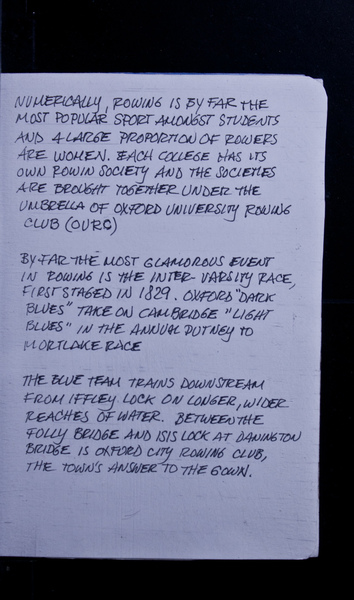 NUMERICALLY, ROWING IS BY FAR THE
MOST POPULAR SPORT AMONGST STUDENTS
AND A LARGE PROPORTION OF ROWERS
ARE WOMEN. EACH COLLEGE HAS ITS
OWN ROWIN SOCIETY AND THE SOCIETIES
ARE BROUGHT TOGETHER UNDER THE
UMBRELLA OF OXFORD UNIVERSITY ROWING
CLUB (OURC)
BY FAR THE MOST GLAMOROUS EVENT
IN ROWING IS THE INTER-VARSITY RACE,
FIRST STAGED IN 1829. OXFORD "DARK
BLUES" TAKE ON CAMBRIDGE "LIGHT
BLUES" IN THE ANNUAL PUTNEY TO
MORTLAKE RACE
THE BLUE TEAM TRAINS DOWNSTREAM
FROM IFFLEY LOCK ON LONGER, WIDER
REACHES OF WATER. BETWEEN THE
FOLLY BRIDGE AND ISIS LOCK AT DANINGTON
BRIDGE IS OXFORD CITY ROWING CLUB,
THE TOWN'S ANSWER TO THE GOWN.